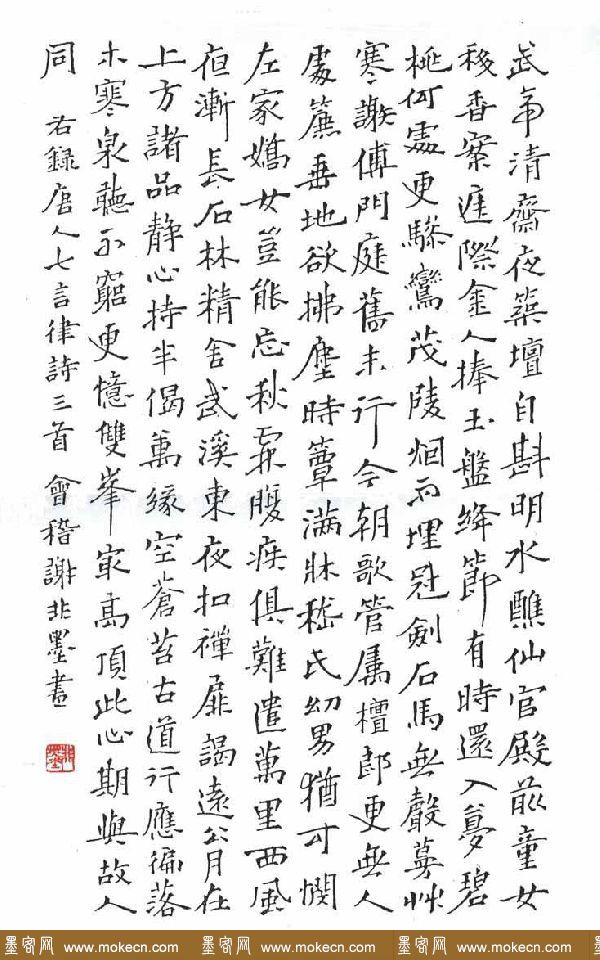 武帝清齋夜築壇自斟明水醮仙官殿前童女
移香案涯際金人捧玉盤絳節有時還入夢碧
桃何處更驂鸞茂陵烟雨埋冠劍石馬無聲蔓艸
寒謝傅門庭舊末行今朝歌管属檀郎更無人
處簾垂地欲拂塵時簟滿牀嵇氏幼男猶可憫
左家嬌女豈能忘秋霖腹疾俱難遣萬里西風
夜漸長石林精舍武溪東夜扣禪扉謁遠公月在
上方諸品靜心持半偈萬緣空蒼苔古道行應徧落
木寒泉聽不窮更憶雙峯最高頂此心期與故人
同
右錄唐人七言律詩三首 會稽謝非墨書
非墨
墨客网 www.mokecn.com 墨客网 www.mokecn.com 墨客网 www.mokecn.com